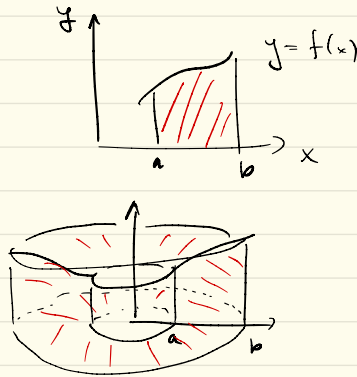 y
y = f(x)
a
b
x
a
b